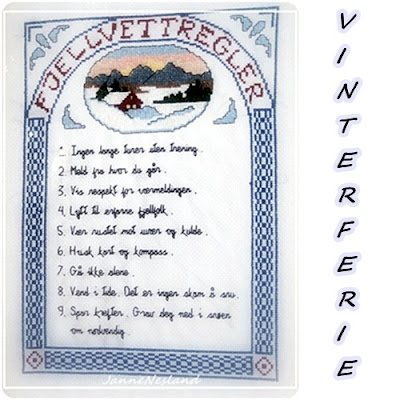 FJELLVETTREGLER
1. Ingen lange turer uten trening.
2. Meld fra hvor du går.
3. Vis respekt for værmeldingen.
4. Lytt til erfarne fjellfolk.
5. Vær rustet mot uvær og kulde.
6. Husk kart og kompass.
7. Gå ikke alene.
8. Vend i tide. Det er ingen skam å snu.
9. Spar krefter. Grav deg ned i snøen
om nødvendig.
JanneNesland
VINTERFERIE